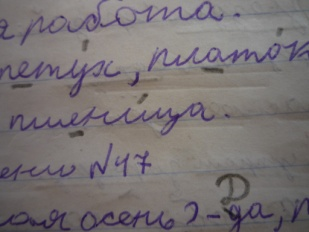 я работа.
петух, платок
пшеница.
ению №47
лая осень)-да, п